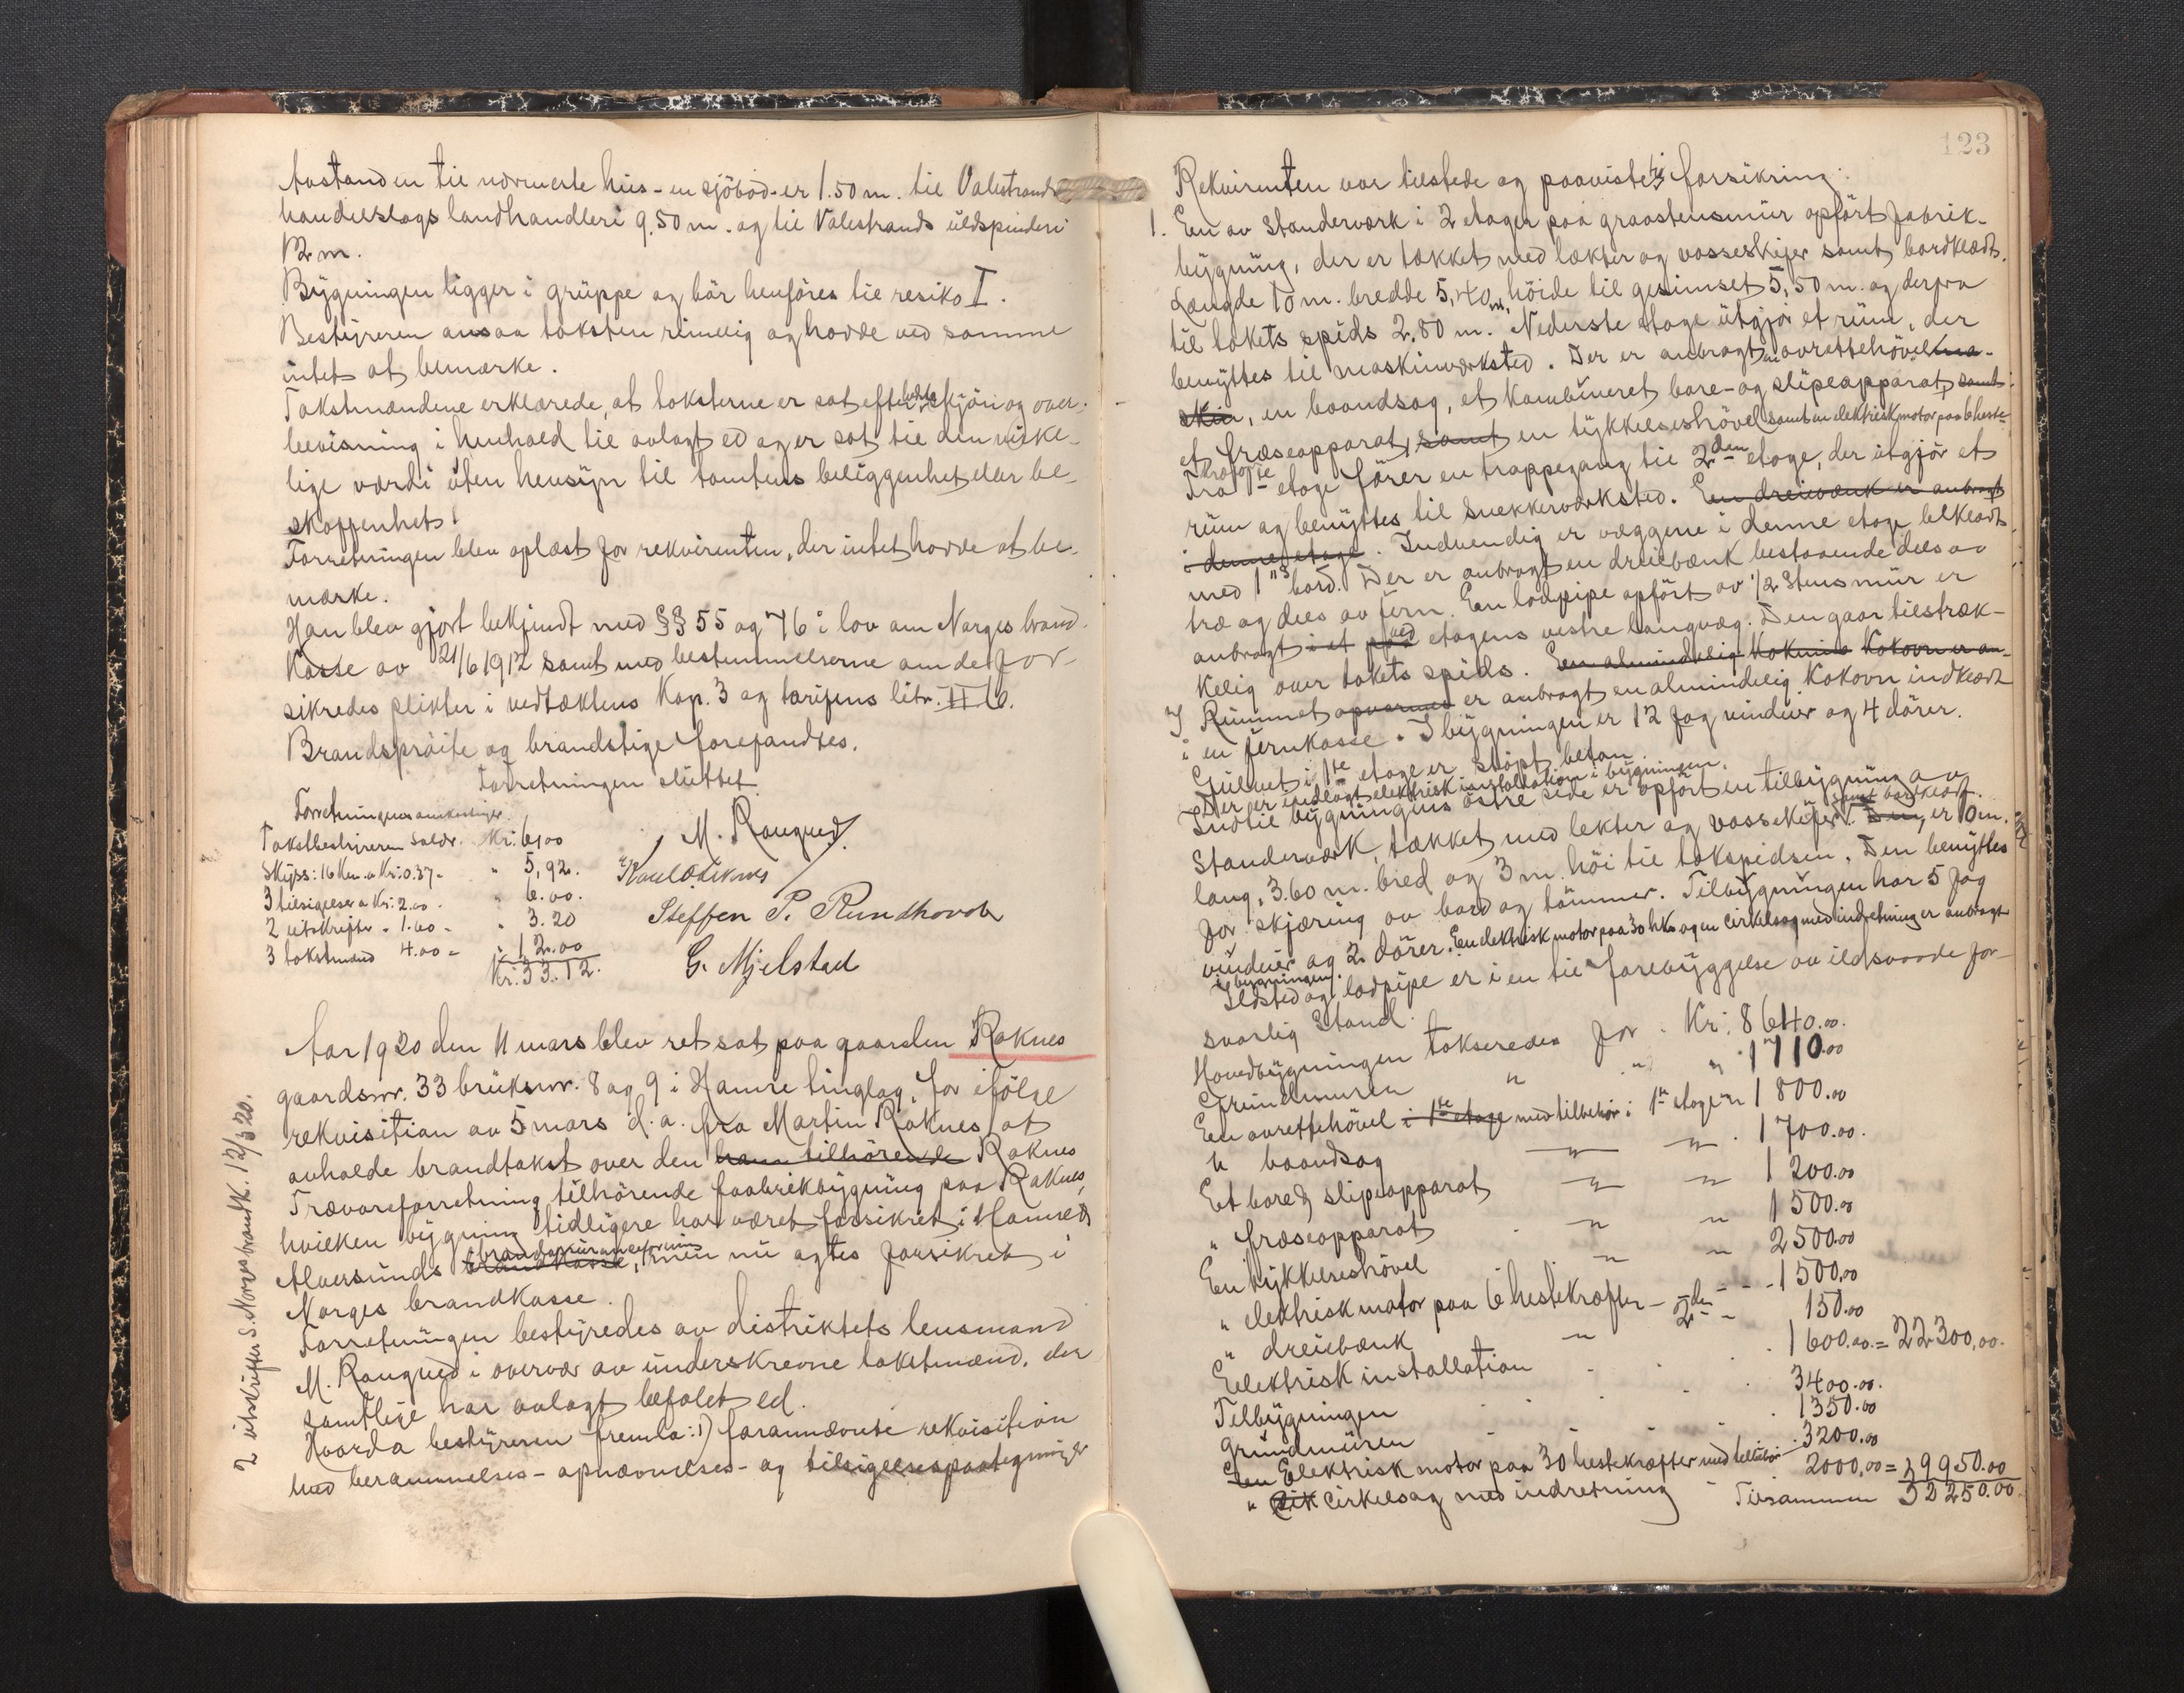 Avstanden til nærmeste hus - en sjöbod - er 1.50 m. til Valestrands
handelslags landhandleri 9.50 m. og til Valestrands uldspinderi
12 m.
Bygningen ligger i gruppe og bör henföres til resiko I.
Bestyreren ansaa taksten rimelig og havde ved samme
intet at bemærke.
Takstmændene erklærede, at taksterne er sat efter bedste skjön og over-
bevisning i henhold til avlagt ed og er sat til den virke-
lige værdi uten hensyn til tomtens beliggenhet eller be-
skaffenhet.
Forretningen blev oplæst for rekvirenten, der intet havde at be-
mærke.
Han blev gjort bekjendt med §§ 55 og 76 i lov om Norges brand-
kasse av 21/6 1912 samt med bestemmelserne om de for-
sikredes plikter i vedtæktens Kap. 3 og tarifens litr. H 6.
Brandspröite og brandstige forefandtes.
Forretningen sluttet
Forretningens omkostninger
Takstbestyreren Salær. Kr: 6,00
Skyss: 16 Km. a Kr: 0.37 - " 5,92.
3 tilsigelser a Kr: 2.00 - " 6.00.
2 utskrifter - 1.60 - " 3.20
3 takstmænd 4.00 = " 12.00
Kr: 33.12.
M. Raugved.
Steffen P. Rundhovde
G. Mjelstad
Aar 1920 den 11 mars blev ret sat paa gaarden Raknes
gaardsnr. 33 bruksnr. 8 og 9 i Hamre tinglag, for ifölge
rekvisition av 5 mars d.a. fra Martin Raknes at
avholde brandtakst over den ham tilhörende Raknes
Trævareforretning tilhörende faabrikbygning paa Raknes,
hvilken bygning tidligere har været forsikret i Hamre &
Alversunds brandkasse, men nu agtes forsikret i
Norges brandkasse.
Forretningen bestyredes av distriktets lensmand
M. Raugved i overvær av underskrevne takstmænd, der
samtlige har avlagt befalet ed.
Hvorda bestyreren fremla: 1) forannævnte rekvisition
med berammelses- opnævnelses- og tilsigelsespaategninger
2 utskrifter S. Norges brandk. 12/3 20.
123
Rekvirenten var tilstede og paaviste til forsikring:
1. En av Standerværk i 2 etager paa graastensmur opfört fabrik-
bygning, der er tækket med lækter og vosseskifer samt bordklædt.
Længde 10 m. bredde 5,40 m, höide til gesimset 5,50 m. og derfra
til takets spids 2,80 m. Nederste etage utgjör et rum, der
benyttes til maskinværksted. Der er anbragt en avrettehövelma-
skin, en baandsag, et kombineret bore- og slipeapparat, samt
et fræseapparat, samt en tykkelseshövel samt en elektrisk motor paa 6 heste-
kræfter
Fra 1ste etage förer en trappegang til 2den etage, der utgjör et
rum og benyttes til Snekkerværksted. En dreiebænk er anbragt
i denne etage. Indvendig er væggene i denne etage beklædt
med 1"s bord. Der er anbragt en dreiebænk bestaaende dels av
træ og dels av jern. En lodpipe opfört av 1/2 Stens mur er
anbragt i et paa ved etagens vestre langvæg. Den gaar tilstræk-
kelig over takets spids. En almindelig kokovn er an-
I Rummet opvarmes er anbragt en almindelig Kokovn indklædt
i en jernkasse. I bygningen er 12 fag vinduer og 4 dörer.
Gulvet i 1ste etage er stöpt beton.
Der er indlagt elektrisk installation i bygningen.
Indtil bygningens östre side er opfört en tilbygning av
Standerværk, tækket med lekter og vosseskifer samt bordklædt. Den, er 10 m.
lang, 3.60 m. bred og 3 m. höi til takspidsen. Den benyttes
for skjæring av bord og tömmer. Tilbygningen har 5 fag
vinduer og 2 dörer. En elektrisk motor paa 30 hk. og en cirkelsag med indretning er anbragt
i bygningen.
Ildsted og lodpipe er i en til forebyggelse av ildsvaade for-
svarlig Stand.
Hovedbygningen takseredes for. Kr: 8640.00.
Grundmuren " " " 1710.00
En avrettehövel i 1ste etage med tilbehör i 1ste etage " 1800.00
" baandsag " " 1700.00.
Et bore & slipeapparat " " 1200.00
" fræseapparat " " 1500.00
En tykkelseshövel " " 2500.00
" elektrisk motor paa 6 hestekræfter - - - 1500.00
" dreiebænk " 2den - 150.00
Elektrisk installation 1600.00. = 22300,00.
Tilbygningen 3400.00.
Grundmuren 1350.00
En Elektrisk motor paa 30 hestekræfter med tilbehör 3200.00
" Cirkelsag med indretning 2000,00 = 9950.00
Tilsammen 32250.00.